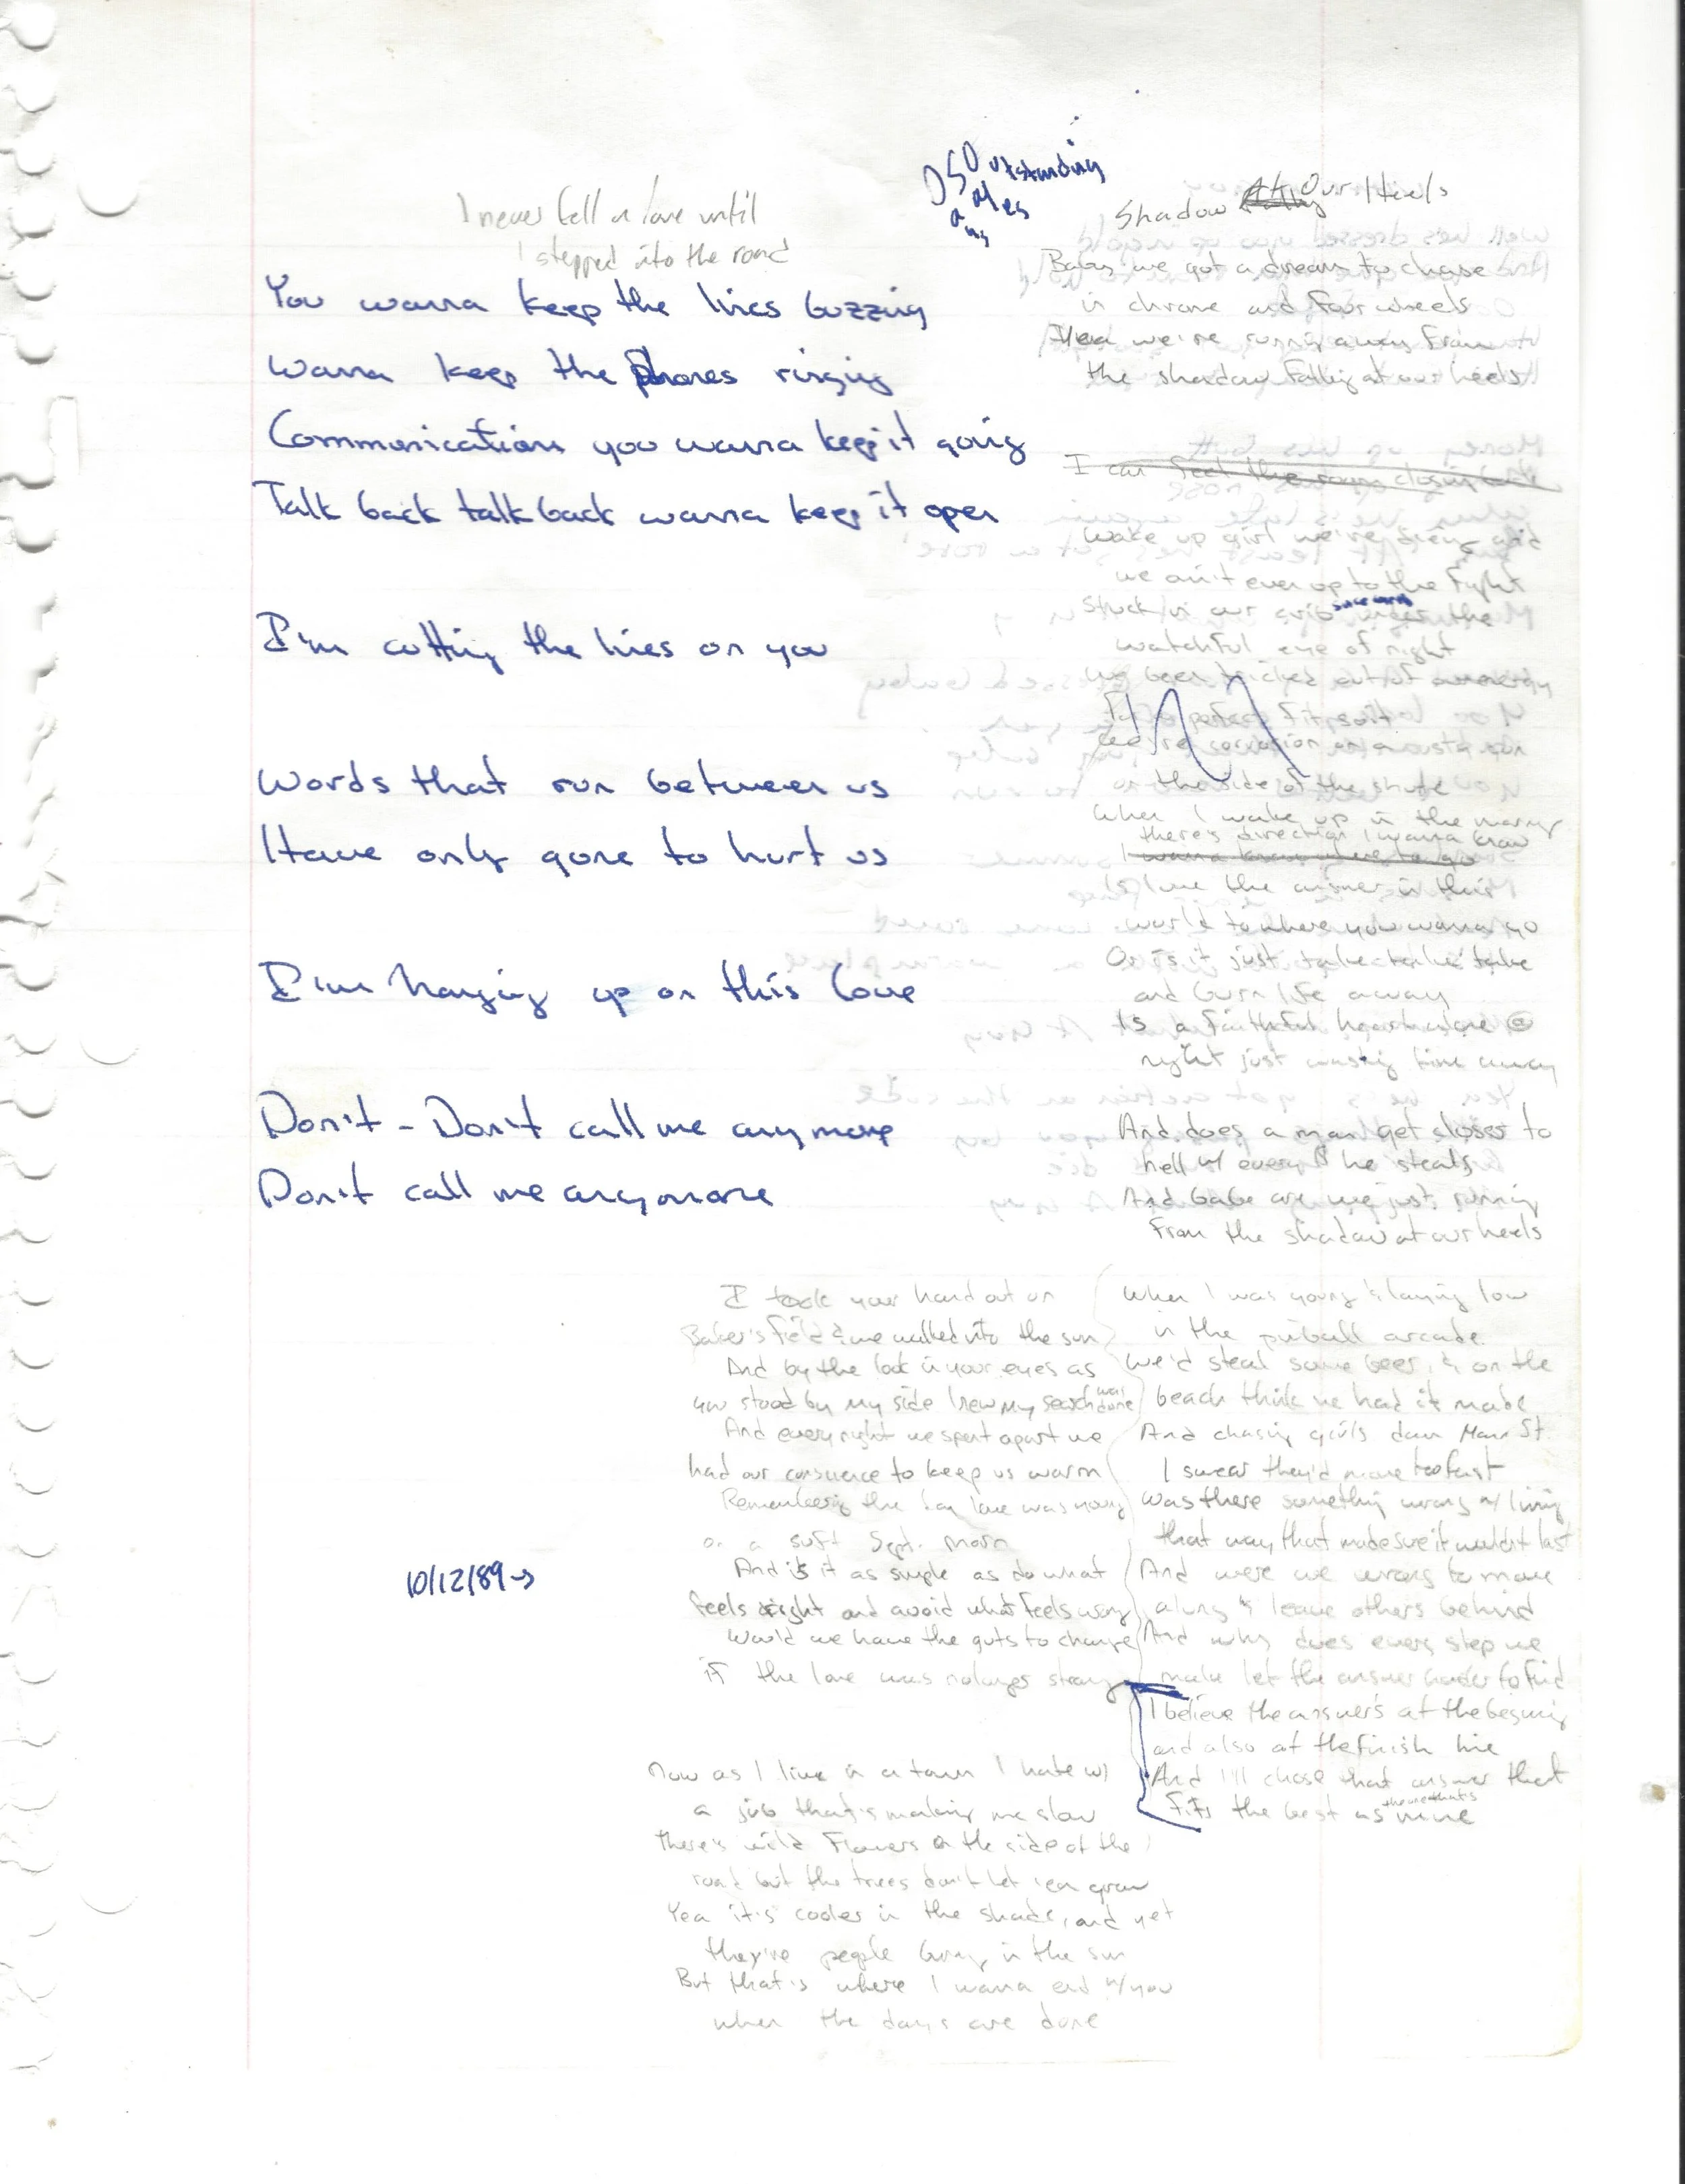 I never fell in love until
I stepped into the road
You wanna keep the lines buzzing
Wanna keep the phones ringing
Communications you wanna keep it going
Talk back talk back wanna keep it open
I'm cutting the lines on you
Words that run between us
Have only gone to hurt us
I'm hanging up on this love
Don't - Don't call me anymore
Don't call me anymore
10/12/89→
Outstanding
Shadow At Our Heels
Baby we got a dream to chase
in chrome and four wheels
Yea we're running away from
the shadow falling at our heels
I can feel the room closing
Wake up girl we're dying and
we ain't even up to the fight
Stuck in our under the
watchful eye of night
been tricked out of
perfect fit suit
on the side of the
When I wake up in the morning
there's direction I wanna know
I wanna know where to go
Is love the answer in this
world to where you wanna go
Or is it just take take take
and burn life away
Is a faithful heart alone @
night just wasting time away
And does a man get closer to
hell w/ every he steals
And babe are we just running
from the shadow at our heels
When I was young & laying low
in the pinball arcade
We'd steal some beer & on the
beach think we had it made
And chasing girls down Main St.
I swear they'd move too fast
Was there something wrong w/ living
that way, that made sure it wouldn't last
And were we wrong to move
along & leave others behind
And why does every step we
make let the answer harder to find
I believe the answer's at the beginning
and also at the finish line
And I'll chose that answer that
fits the best as the one that's mine
I took your hand out on
Baker's Field & we walked into the sun
And by the look in your eyes as
you stood by my side I knew my search was done
And every night we spent apart we
had our conscience to keep us warm
Remembering the day love was young
on a soft Sept. morn
And is it as simple as do what
feels right and avoid what feels wrong
Would we have the guts to change
if the love was no longer strong
Now as I live in a town I hate w/
a job that's making me slow
There's wild flowers on the side of the
road but the trees don't let 'em grow
Yea it's cooler in the shade, and yet
they're people living in the sun
But that's where I wanna end w/ you
when the days are done